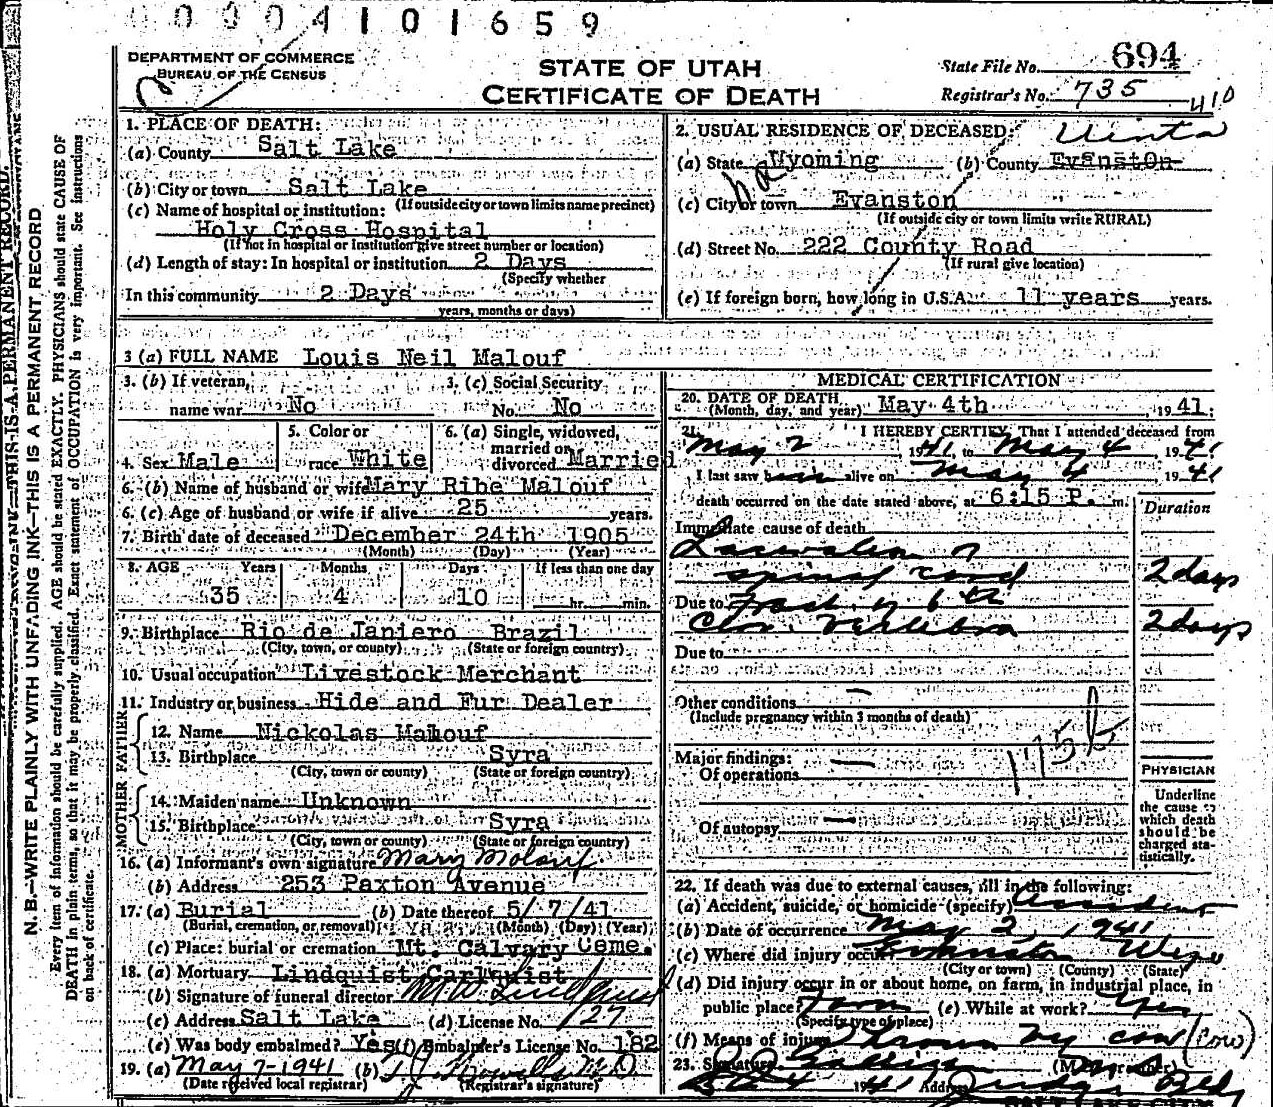 0 0 0 4 1 0 1 6 5 9
DEPARTMENT OF COMMERCE
BUREAU OF THE CENSUS
STATE OF UTAH
CERTIFICATE OF DEATH
State File No. 694
Registrar's No. 735
410
1. PLACE OF DEATH:
(a) County Salt Lake
(b) City or town Salt Lake
(If outside city or town limits name precinct)
(c) Name of hospital or institution:
Holy Cross Hospital
(If not in hospital or Institution give street number or location)
(d) Length of stay: In hospital or institution 2 Days
(Specify whether
In this community 2 Days
years, months or days)
2. USUAL RESIDENCE OF DECEASED: Uinta
(a) State Wyoming (b) County Evanston
(c) City or town Evanston
(If outside city or town limits write RURAL)
(d) Street No. 222 County Road
(If rural give location)
(e) If foreign born, how long in U.S.A. 11 years years.
3 (a) FULL NAME Louis Neil Malouf
3. (b) If veteran,
name war No
3. (c) Social Security
No. No
4. Sex Male
5. Color or
race White
6. (a) Single, widowed,
married or
divorced Married
6. (b) Name of husband or wife Mary Ribe Malouf
6. (c) Age of husband or wife if alive 25 years.
7. Birth date of deceased December 24th 1905
(Month) (Day) (Year)
8. AGE Years Months Days If less than one day
35 4 10 hr. min.
9. Birthplace Rio de Janiero Brazil
(City, town, or county) (State or foreign country)
10. Usual occupation Livestock Merchant
11. Industry or business Hide and Fur Dealer
FATHER
12. Name Nickolas Malouf
13. Birthplace Syra
(City, town or county) (State or foreign country)
MOTHER
14. Maiden name Unknown
15. Birthplace Syra
(City, town or county) (State or foreign country)
16. (a) Informant's own signature Mary Malouf
(b) Address 253 Paxton Avenue
17. (a) Burial (b) Date thereof 5/7/41
(Burial, cremation, or removal) (Month) (Day) (Year)
(c) Place: burial or cremation Mt. Calvary Ceme.
18. (a) Mortuary Lindquist Carlquist
(b) Signature of funeral director
(c) Address Salt Lake (d) License No. 127
(e) Was body embalmed? Yes (f) Embalmer's License No. 182
19. (a) May 7-1941 (b)
(Date received local registrar) (Registrar's signature)
MEDICAL CERTIFICATION
20. DATE OF DEATH
(Month, day, and year) May 4th, 1941.
21. I HEREBY CERTIFY, That I attended deceased from
May 2 1941, to May 4, 1941
I last saw him alive on May 4, 1941
death occurred on the date stated above, at 6:15 P. m.
Duration
Immediate cause of death
Laceration of
spinal cord 2 days
Due to Fract. of 6th
Cerv. Vertebra 2 days
Due to
Other conditions —
(Include pregnancy within 3 months of death)
175b
Major findings:
Of operations —
Of autopsy —
PHYSICIAN
Underline
the cause to
which death
should be
charged sta-
tistically.
22. If death was due to external causes, fill in the following:
(a) Accident, suicide, or homicide (specify) Accident
(b) Date of occurrence May 2, 1941
(c) Where did injury occur? Evanston Wyo
(City or town) (County) (State)
(d) Did injury occur in or about home, on farm, in industrial place, in
public place? Farm (e) While at work? Yes
(Specify type of place)
(f) Means of injury Thrown by cow (Cow)
23. Signature
1941 Address Judge Bldg
SALT LAKE CITY
N. B.—WRITE PLAINLY WITH UNFADING INK—THIS IS A PERMANENT RECORD
Every item of information should be carefully supplied. AGE should be stated EXACTLY. PHYSICIANS should state CAUSE OF
DEATH in plain terms, so that it may be properly classified. Exact statement of OCCUPATION is very important. See instructions
on back of certificate.